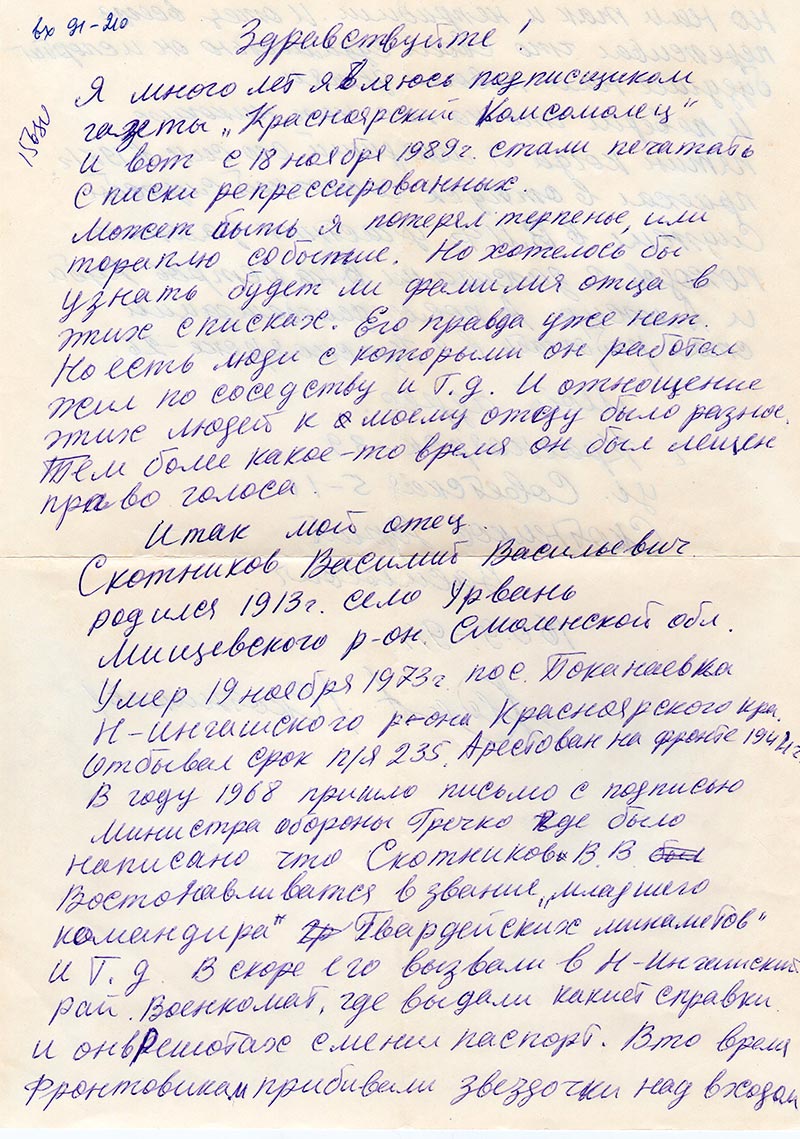 вх 91-210
Здравствуйте!
Я много лет являюсь подписщиком
газеты „Красноярский Комсомолец"
И вот с 18 ноября 1989г. стали печатать
списки репрессированных.
Может быть я потерял терпенье, или
тораплю событие. Но хотелось бы
узнать будет ли фамилия отца в
этих списках. Его правда уже нет.
Но есть люди с которыми он работал
жил по соседству и Т.д. И отнощение
этих людей к моему отцу было разное.
Тем более какое-то время он был лещен
право голоса.
Итак мой отец.
Скотников Василий Васильевич.
родился 1913г. село Урвань
Мищевского р-он. Смоленской обл.
Умер 19 ноября 1973г. пос. Поканаевка
Н-Ингашского р-она Красноярского кра.
Отбывал срок п/я 235. Арестован на фронте
В году 1968 пришло письмо с подписью
Министра обороны Гречко где было
написано что Скотников В. В.
Востонавливатся в звание „младшего
командира" Гвардейских минаметов"
и Т. д. В скоре его вызвали в Н-Ингашский
рай. Военкомат, где выдали какиет справки
и он в Решотах сменил паспорт. В то время
Фронтовикам прибивали звездочки над входом